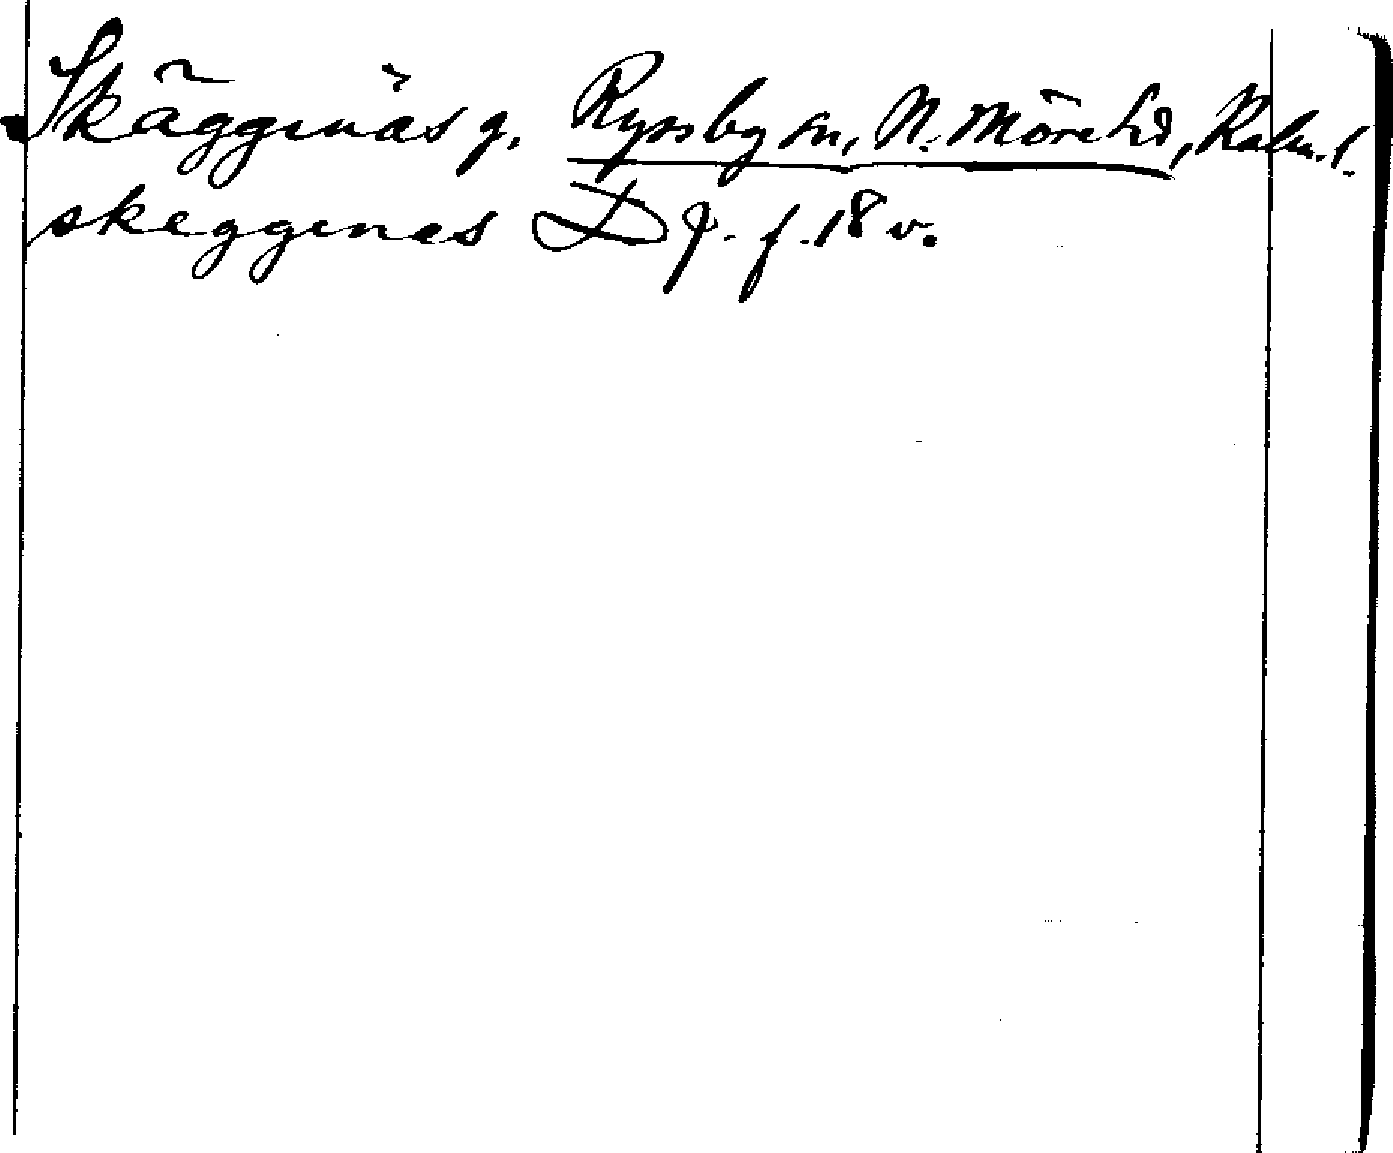 Skäggenäs g. Ryssby sn, N. Möre hd, Kalm. l.
skeggenes D 9. f. 18 v.